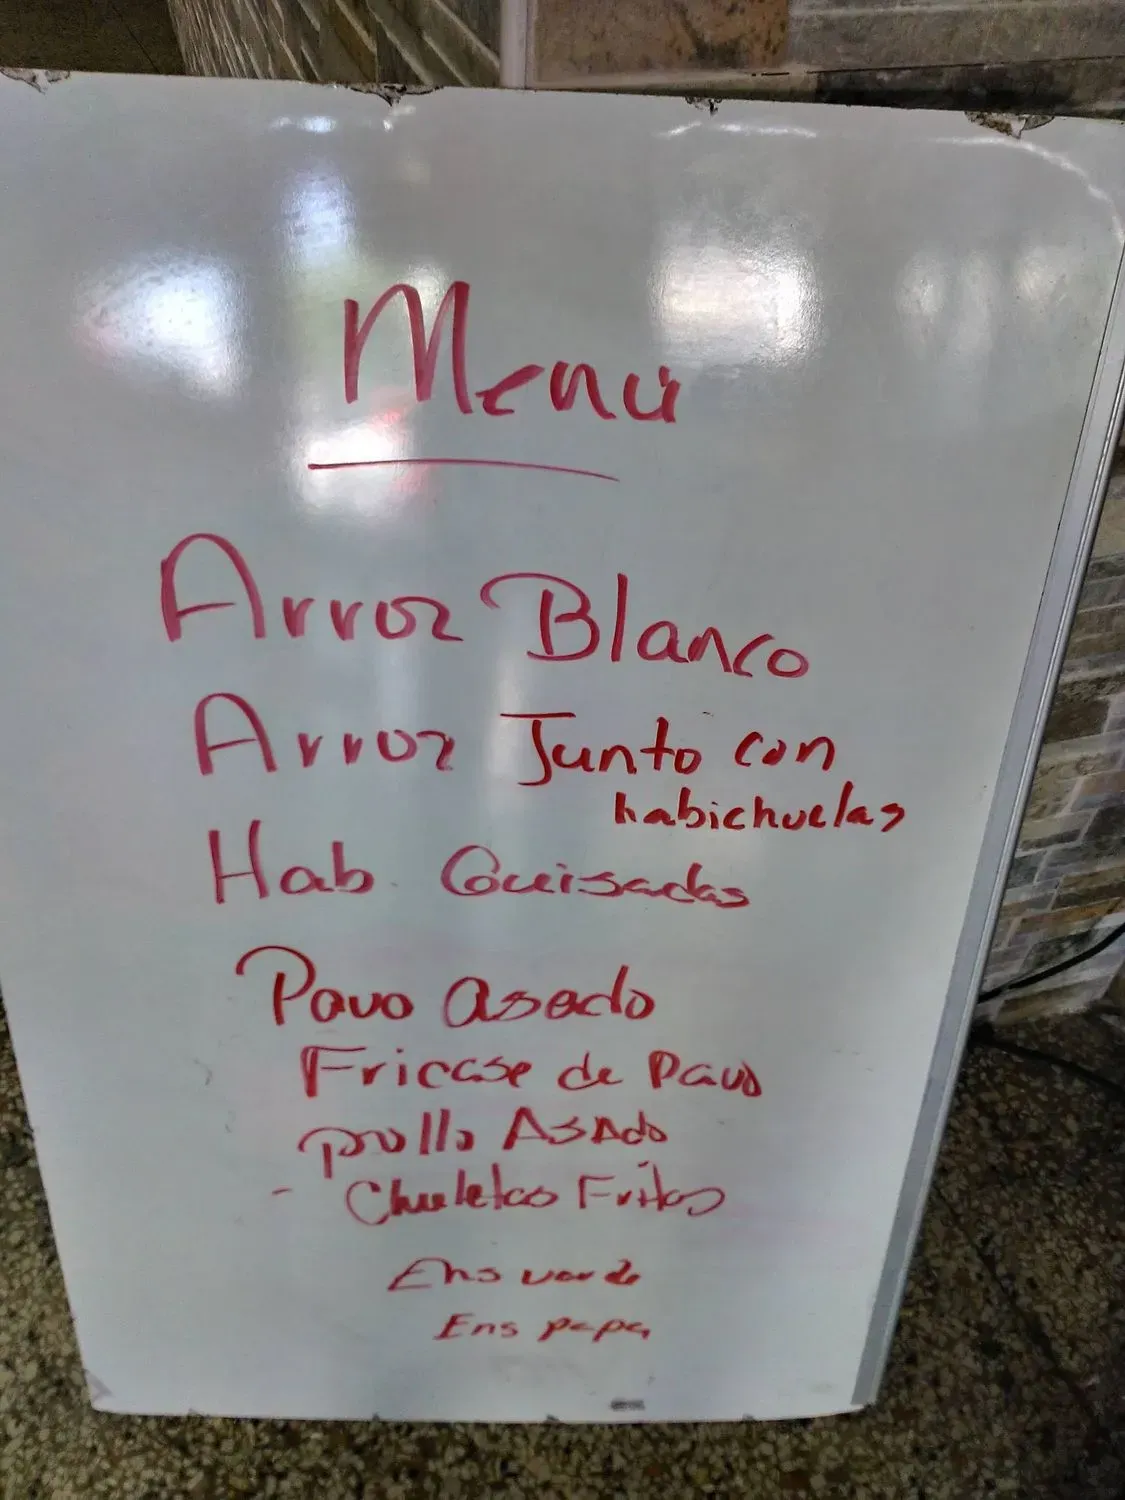 Menú
Arroz Blanco
Arroz Junto con
habichuelas
Hab. Guisadas
Pavo asado
Fricase de Pavo
pollo ASAdo
- Chuletas Fritas
Ens verde
Ens papa